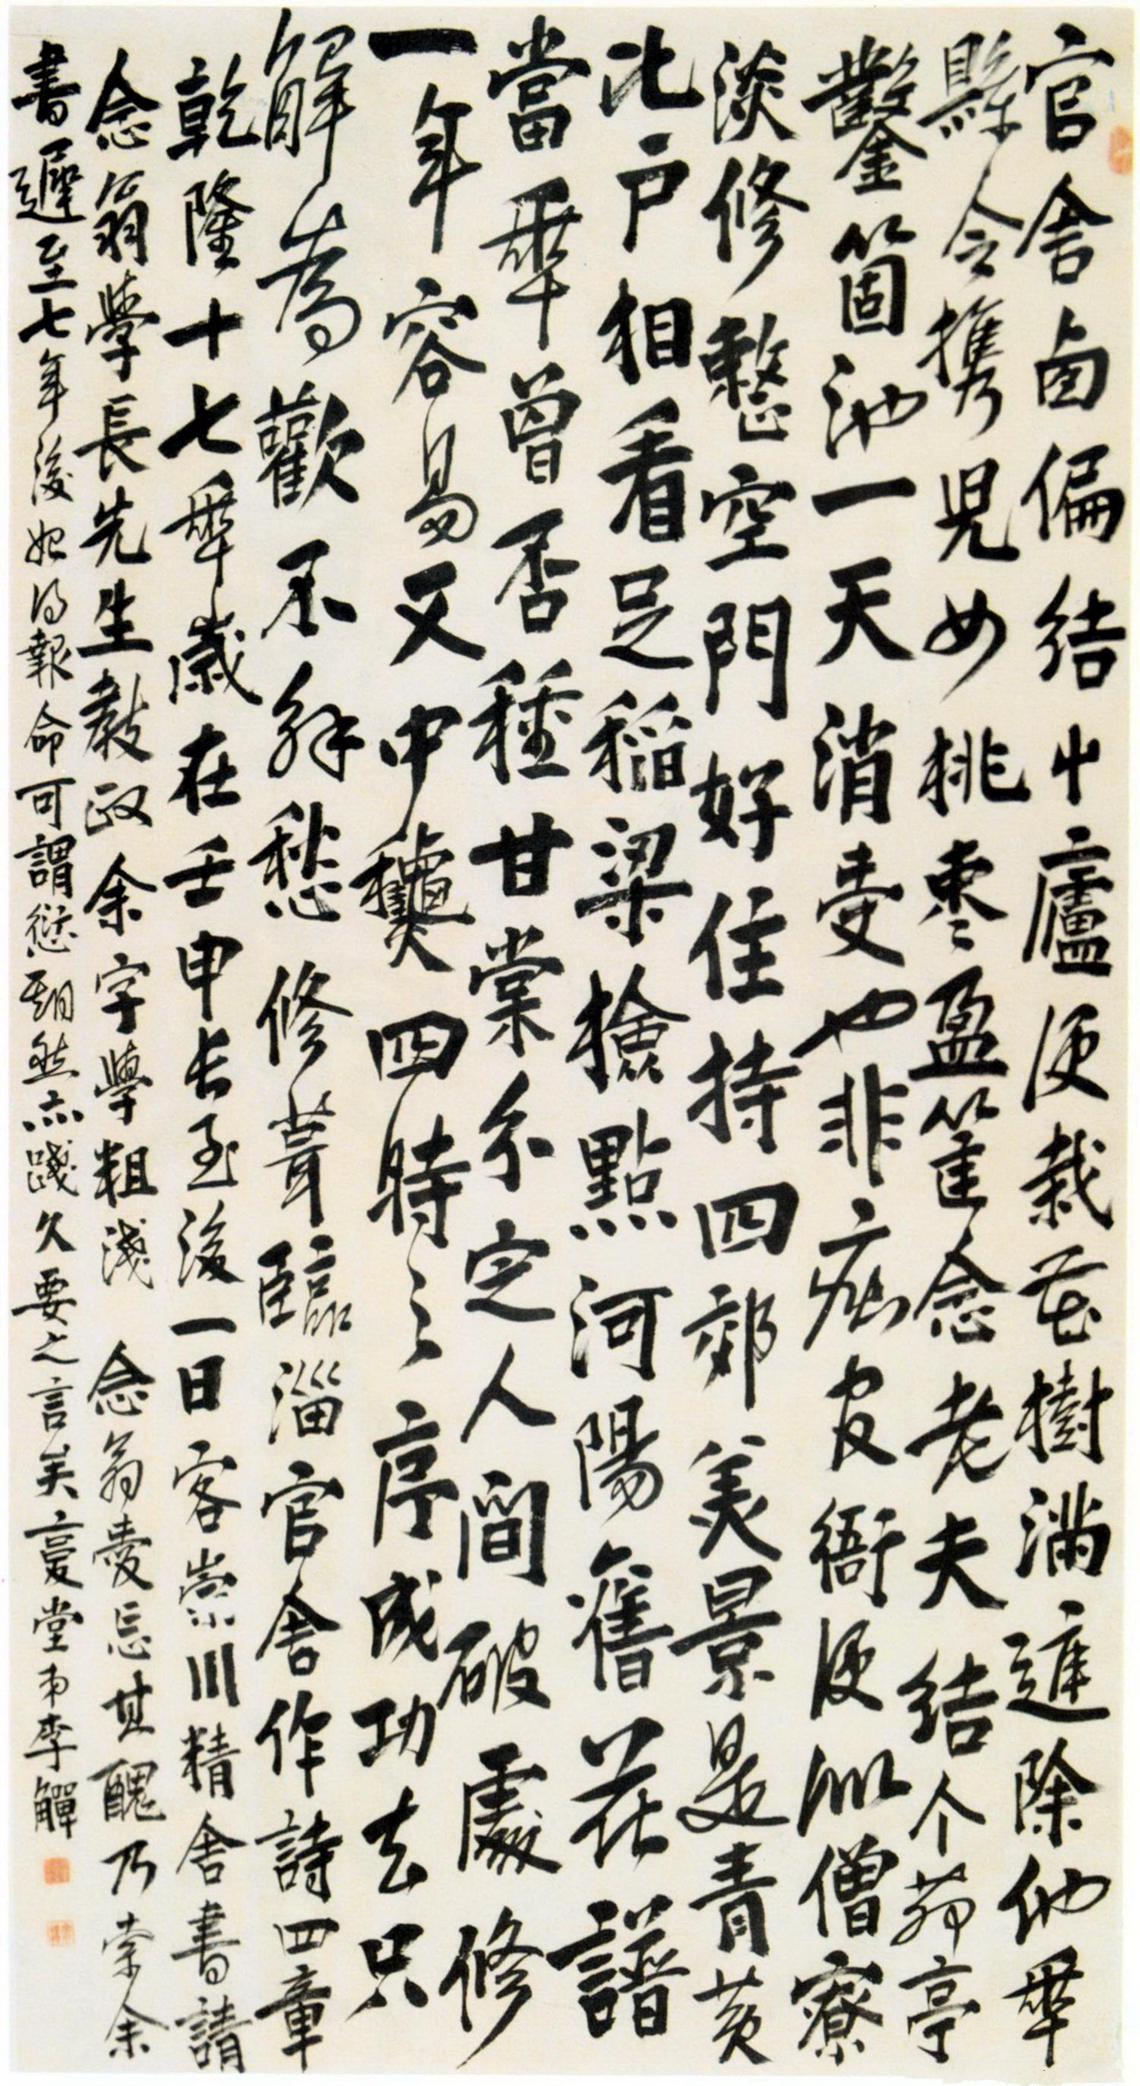 官舍西偏結小廬便栽花樹滿庭除他年
縣令攜兒女桃棗盈筐念老夫結个茆亭
鑿箇池一天消受也非癡官衙便似僧寮
淡修憗空門好住持四郊美景是青黃
比户相看足稻粱撿點河陽舊花譜
當年曾否種甘棠分定人間破處修
一年容易又中穐四時之序成功去只
解為歡不解愁修葺臨淄官舍作詩四章
乾隆十七年歲在壬申長至後一日客崇川精舍書請
念翁學長先生教政余字學粗淺念翁愛忘其醜乃索余
書遲至七年後始得報命可謂愆期然亦踐久要之言矣憂堂弟李觶